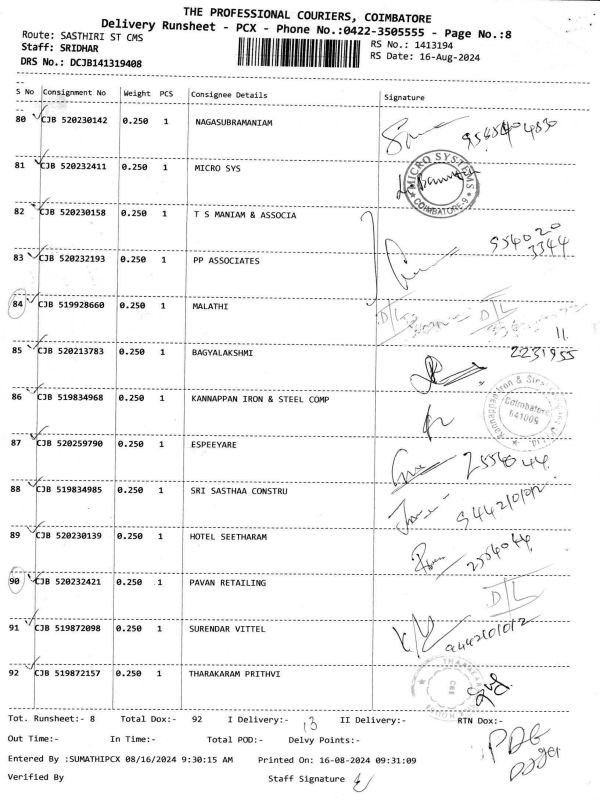 THE PROFESSIONAL COURIERS, COIMBATORE
Delivery Runsheet - PCX - Phone No.:0422-3505555 - Page No.:8
Route: SASTHIRI ST CMS
RS No.: 1413194
Staff: SRIDHAR
RS Date: 16-Aug-2024
DRS No.: DCJB141319408
S No Consignment No Weight PCS Consignee Details Signature
80 CJB 520230142 0.250 1 NAGASUBRAMANIAM
81 CJB 520232411 0.250 1 MICRO SYS
MICRO SYSTEMS
COIMBATORE-9
82 CJB 520230158 0.250 1 T S MANIAM & ASSOCIA
83 CJB 520232193 0.250 1 PP ASSOCIATES
954020
3344
84 CJB 519928660 0.250 1 MALATHI
D/L D/L
11.
85 CJB 520213783 0.250 1 BAGYALAKSHMI
2231955
86 CJB 519834968 0.250 1 KANNAPPAN IRON & STEEL COMP
Kannappan Iron & Steel
Coimbatore
641009
87 CJB 520259790 0.250 1 ESPEEYARE
2554044
88 CJB 519834985 0.250 1 SRI SASTHAA CONSTRU
89 CJB 520230139 0.250 1 HOTEL SEETHARAM
2554044
90 CJB 520232421 0.250 1 PAVAN RETAILING
D/L
91 CJB 519872098 0.250 1 SURENDAR VITTEL
92 CJB 519872157 0.250 1 THARAKARAM PRITHVI
CBE
Tot. Runsheet:- 8 Total Dox:- 92 I Delivery:- 13 II Delivery:- RTN Dox:-
Out Time:- In Time:- Total POD:- Delvy Points:-
Entered By :SUMATHIPCX 08/16/2024 9:30:15 AM Printed On: 16-08-2024 09:31:09
Verified By Staff Signature